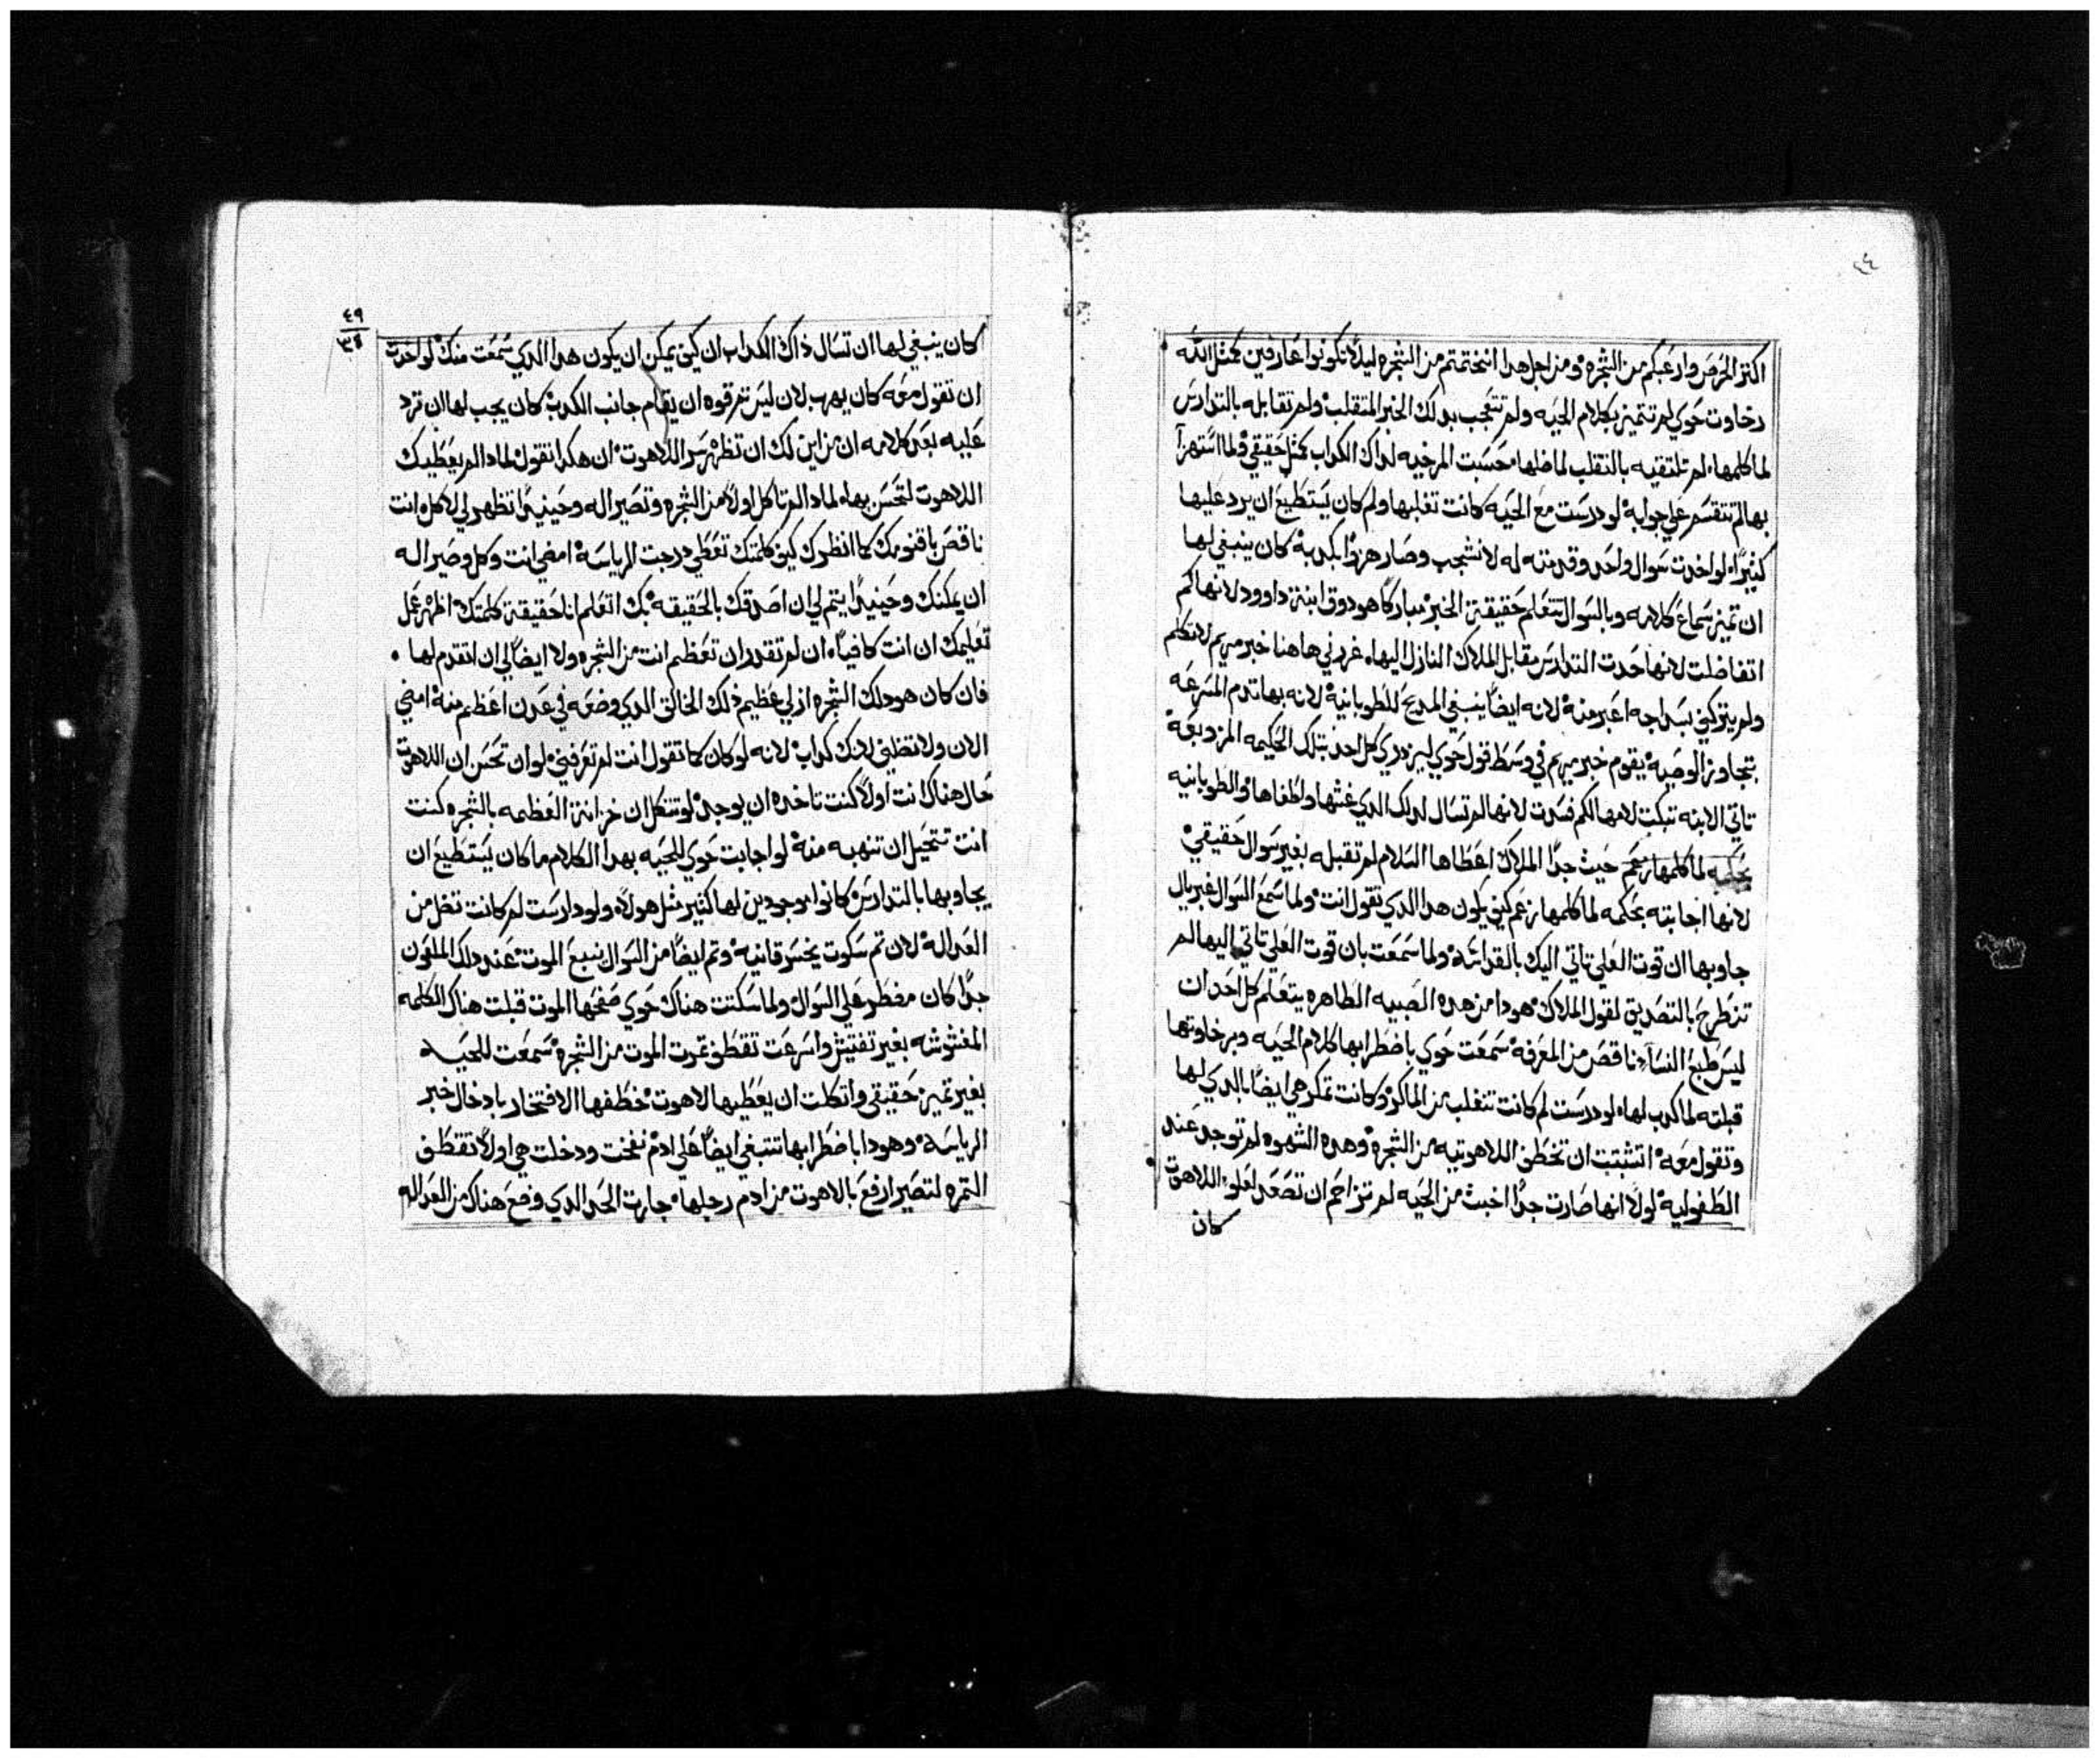 ٤٤
اكتر الحرص وارغبكم من الشجره ومن اجل هدا انختمتم من الشجره ليلا تكونوا عارفين كمثل الله
رخاوت حوي لم تتميز بكلام الحيه ولم تتعجب بدلك الخبر المتقلب ولم تقابله بالتدارس
لما كلمها لم تلتقيه بالتقلب لما ضلها حسبت المرخيه لداك الكداب كمثل حقيقي ولما استهزا
بها لم تتقسم علي جوابه لو درست مع الحيه كانت تغلبها ولم كان يستطيع ان يرد عليها
كثيرا لو اخدت سوال واحد وقدمته له لانشجب وصار هزوا بكدبه كان ينبغي لها
ان تميز سماع كلامه وبالسوال تتعلم حقيقة الخبر مباركا هو دوق ابنة داوود لانها كم
اتفاضلت لانها اخدت التدارس مقابل الملاك النازل اليها غردني هاهنا خبر مريم لاتكلم
ولم يتركني بسداجه اعبر منه لانه ايضا ينبغي المديح للطوبانيه لانه بها تدم المسرعه
بتجاوز الوصيه يقوم خبر مريم في وسط قول حوي ليزدري كل احد بتلك الحكيمه المزدبعه
تاتي الابنه تبكت لامها لكم فسدت لانها لم تسال لدلك الدي غشها واطغاها والطوبانيه
بحكمه لما كلمها زعم حيث جدا الملاك اعطاها السلام لم تقبله بغير سوال حقيقي
لانها اجابته بحكمه لما كلمها زعم كيف يكون هدا الدي تقول انت ولما سمع السوال غبريال
جاوبها ان قوت العلي تاتي اليك بالقداسه ولما سمعت بان قوت العلي تاتي اليها لم
تنطرح بالتصديق لقول الملاك هودا من هده الصبيه الطاهره يتعلم كل احد ان
ليس طبع النسا ناقص من المعرفه سمعت حوي باضطرابها كلام الحيه وبرخاوتها
قبلته لما كدب لها لو درست لم كانت تنغلب من الماكر وكانت تمكر هي ايضا بالدي لها
وتقول معه اتشتبت ان تخطف اللاهوتيه من الشجره وهده الشهوه لم توجد عند
الطفوليه لولا انها صارت جدا اخبث من الحيه لم تزاحم ان تصعد لعلو اللاهوت
كان
٤٩
٣٤
كان ينبغي لها ان تسال داك الكداب ان كيف يمكن ان يكون هدا الدي سمعت منك لو اخدت
ان تقول معه كان يهرب لان ليس تم قوه ان يقام جانب الكدب كان يجب لها ان ترد
عليه بعد كلامه ان من اين لك ان تظهر سر اللاهوت ان هكدا تقول لمادا لم يعطيك
اللاهوت لتحسن بها لمادا لم تاكل اولا من الشجره وتصير اله وحينيدا تظهر لي لاكل انت
ناقص باقنومك كما انظرك كيف كلمتك تعطي درجت الرياسه امضي انت وكل وصير اله
ان يمكنك وحينيدا يتم لي ان اصدقك بالحقيقه بك اتعلم انا حقيقة كلمتك اظهر عمل
تعليمك ان انت كافيا ان لم تقدر ان تعظم انت من الشجره ولا ايضا لي ان اتقدم لها
فان كان هو دلك الشجره ازلي عظيم دلك الخالق الدي وضعه في عدن اعظم منه امضي
الان ولا تظلني لانك كداب لانه لو كان كما تقول انت لم تعرفني لو ان تحسن ان اللاهوت
حال هناك انت اولا كنت تاخده ان يوجد لو تتكل ان خزانة العظمه بالشجره كنت
انت تتحيل ان تنهبه منه لو اجابت حوي للحيه بهدا الكلام ما كان يستطيع ان
يجاوبها بالتدارس كانوا موجودين لها كثير مثل هولا ولو دارست لم كانت تضل من
العداله لان تم سكوت يخسر قانيه وتم ايضا من السوال نبيع الموت عند دلك الملعون
جدا كان مضطر علي السوال ولما سكتت هناك حوي صفحها الموت قبلت هناك الكلمه
المغشوشه بغير تفتيش واسرعت تقطف تمرت الموت من الشجره سمعت للحيه
بغير تميز حقيقي واتكلت ان يعطيها لاهوت خطفها الافتخار بادخال خبر
الرياسه وهودا باضطرابها تتبغي ايضا علي ادم نفخت ودخلت هي اولا تقطف
التمره لتصير ارفع بالاهوت من ادم رجلها جازت الحد الدي وضع هناك من العداله